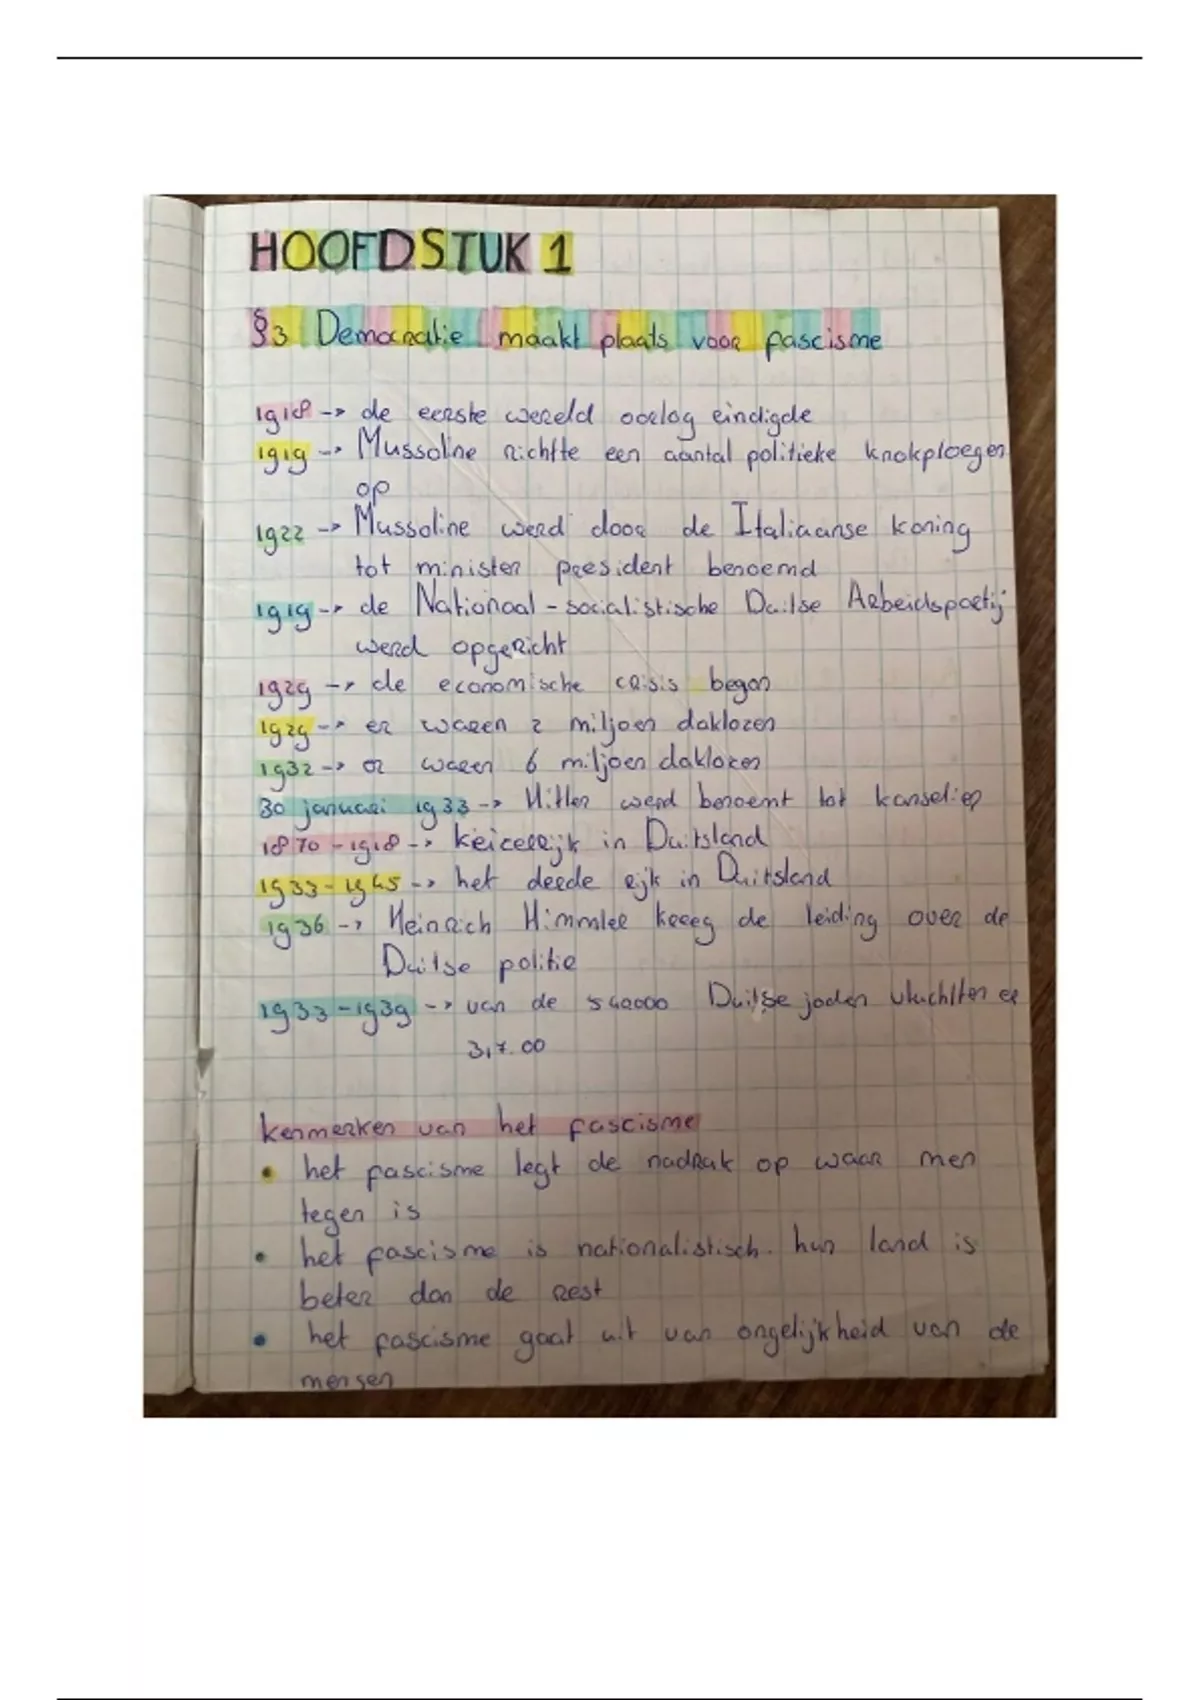 HOOFDSTUK 1
§3 Democratie maakt plaats voor fascisme
1918 -> de eerste wereld oorlog eindigde
1919 -> Mussoline richtte een aantal politieke knokploegen
op
1922 -> Mussoline werd door de Italiaanse koning
tot minister president benoemd
1919 -> de Nationaal-socialistische Duitse Arbeidspartij
werd opgericht
1929 -> de economische crisis begon
1929 -> er waren 2 miljoen daklozen
1932 -> er waren 6 miljoen daklozen
30 januari 1933 -> Hitler werd benoemt tot kanselier
1870-1918 -> keicerijk in Duitsland
1933-1945 -> het derde rijk in Duitsland
1936 -> Heinrich Himmler kreeg de leiding over de
Duitse politie
1933-1939 -> van de 540000 Duitse joden vluchtten er
317.00
kenmerken van het fascisme
• het fascisme legt de nadruk op waar men
tegen is
• het fascisme is nationalistisch. hun land is
beter dan de rest
• het fascisme gaat uit van ongelijkheid van de
mensen